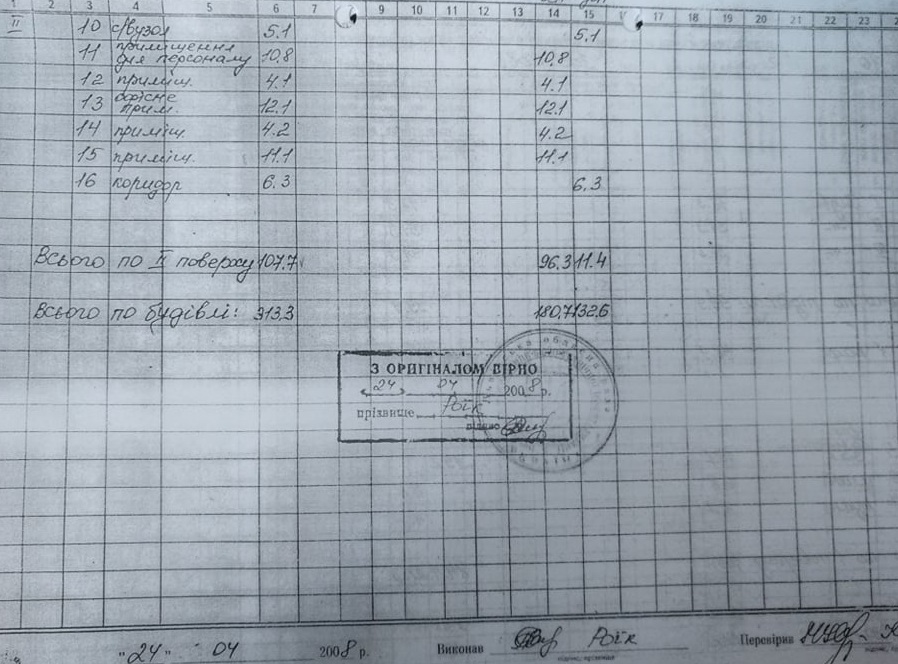 1 2 3 4 5 6 7 9 10 11 12 13 14 15 16 17 18 19 20 21 22 23
II 10 с/вузол 5.1 5.1
11 приміщення для персоналу 10,8 10,8
12 приміщ. 4.1 4.1
13 офісне прим. 12.1 12.1
14 приміщ. 4.2 4.2
15 приміщ. 11.1 11.1
16 коридор 6.3 6.3
Всього по II поверху 107.7 96.3 11.4
Всього по будівлі: 313,3 180,7 132,6
З ОРИГІНАЛОМ ВІРНО
"24" 04 2008 р.
прізвище Роїк
"24" 04 2008 р. Виконав Роїк Перевірив